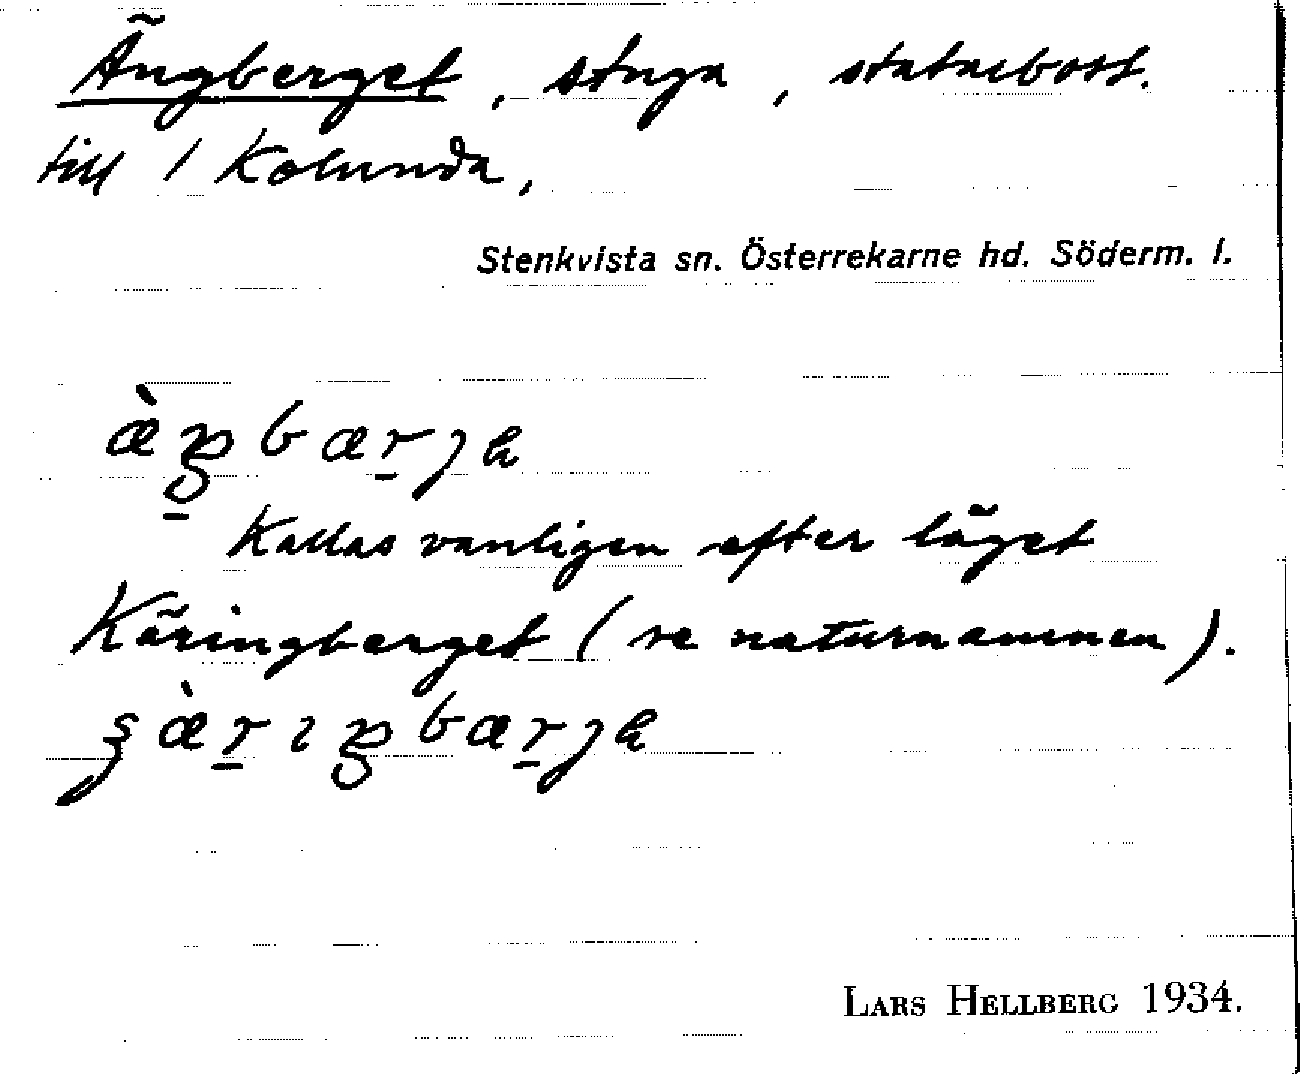 Ängberget, stuga, statarbost.
till 1 Kolunda,
Stenkvista sn. Österrekarne hd. Söderm. l.
Kallas vanligen efter läget
Käringberget (se naturnamnen).
LARS HELLBERG 1934.